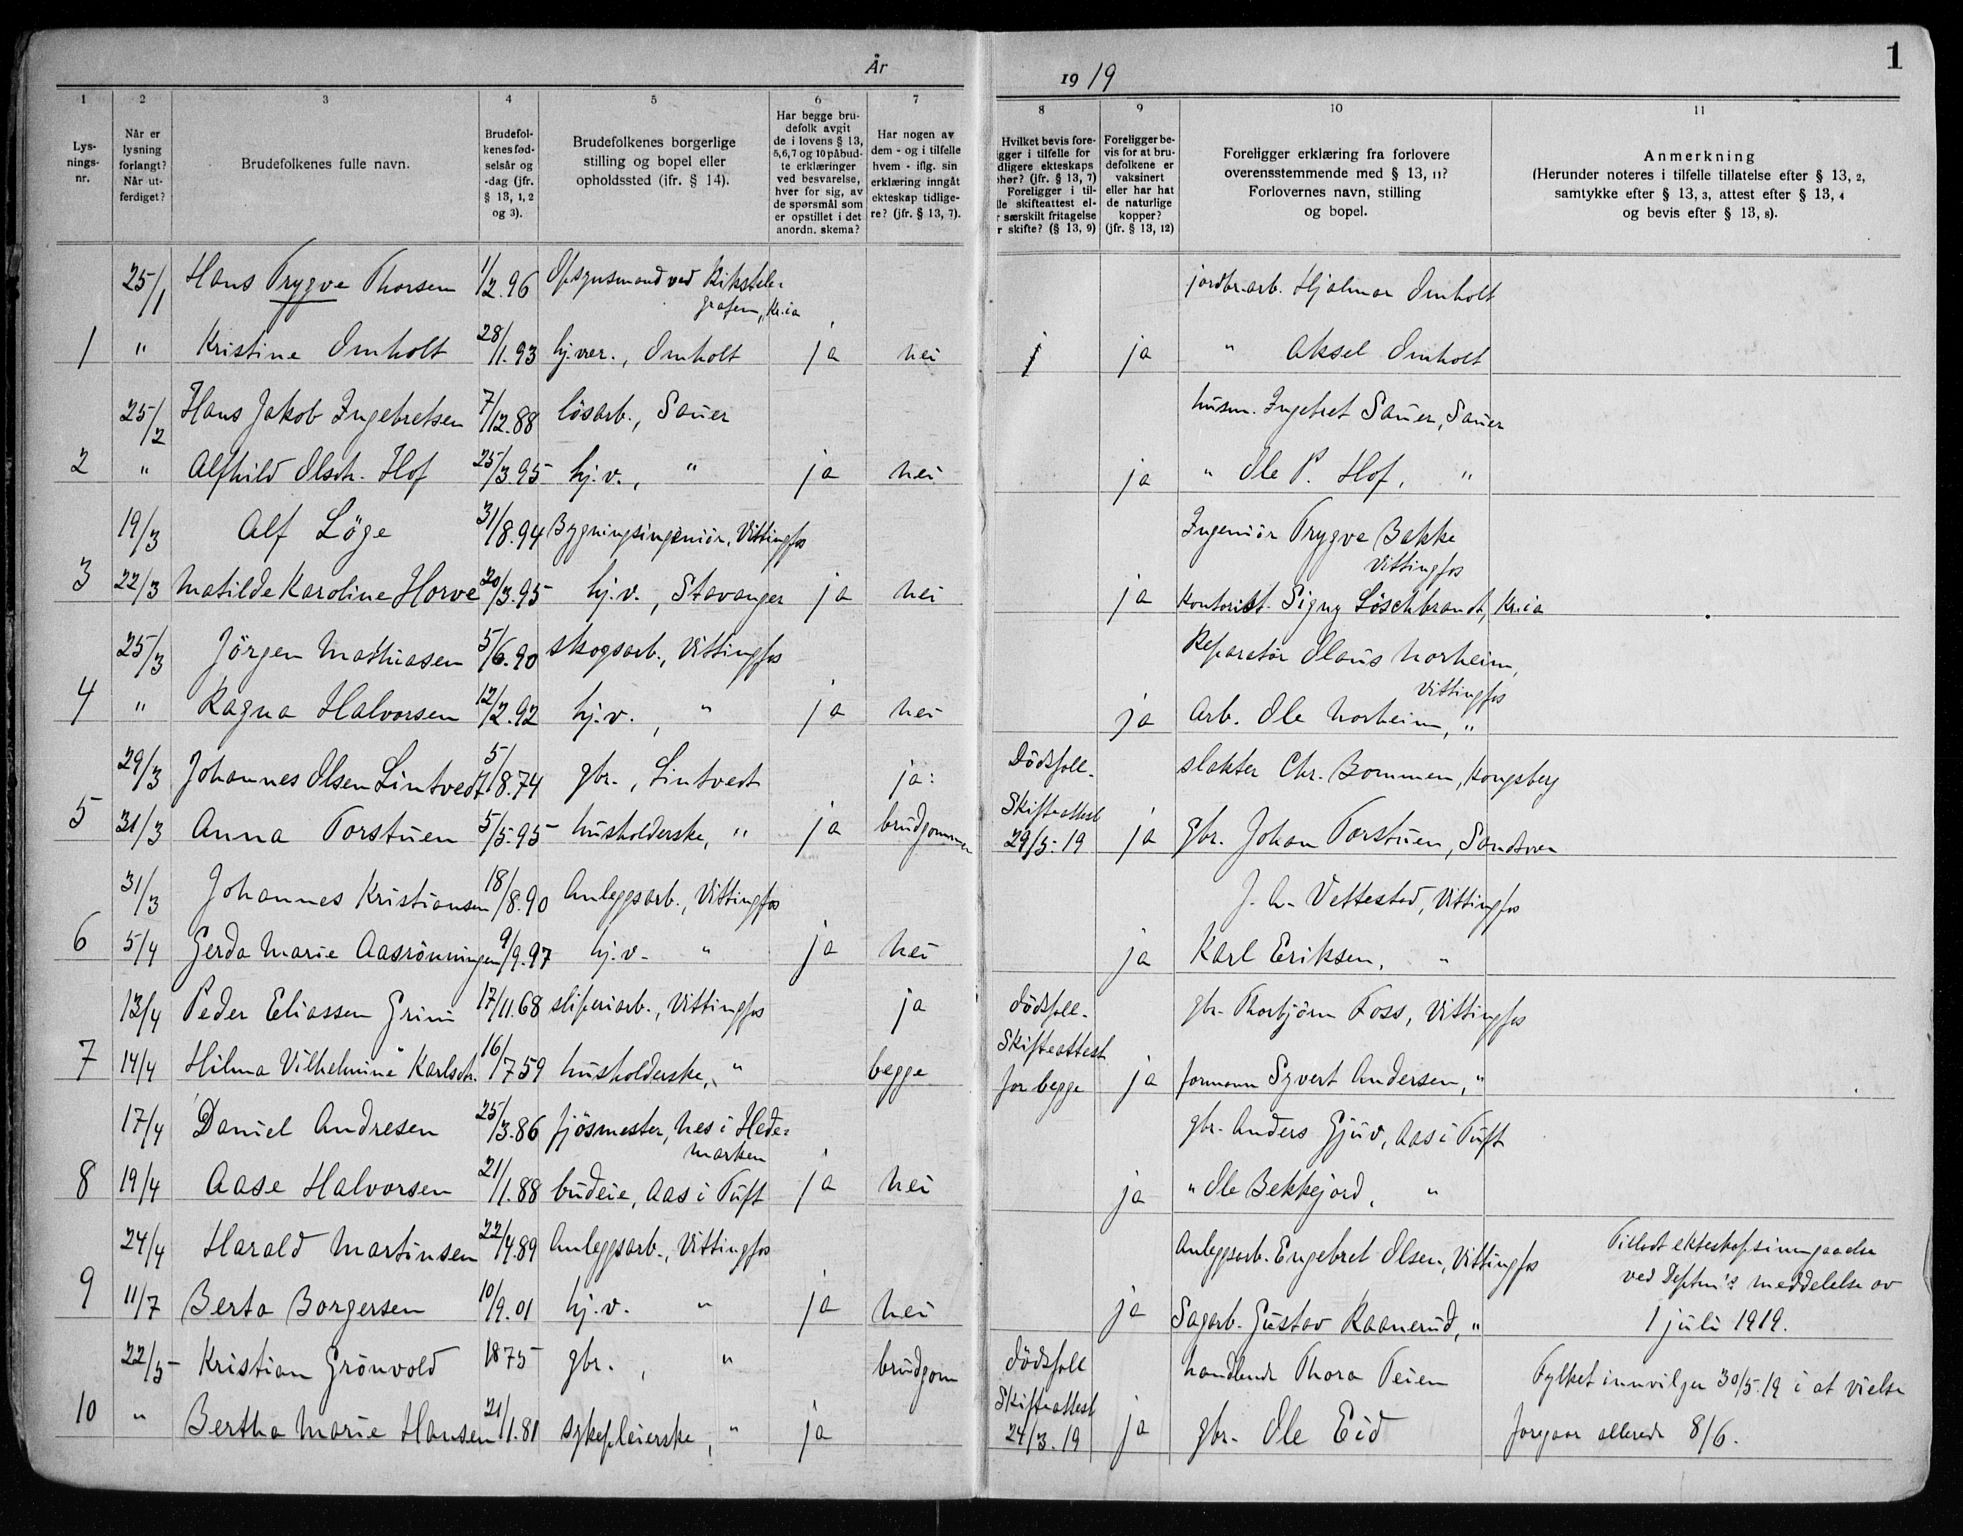 År 1919
1
1 2 3 4 5 6 7 8 9 10 11
Lys-
nings-
nr.
Når er
lysning
forlangt?
Når ut-
ferdiget?
Brudefolkenes fulle navn.
Brudefol-
kenes fød-
selsår og
-dag (jfr.
§ 13, 1, 2
og 3).
Brudefolkenes borgerlige
stilling og bopel eller
opholdssted (ifr. § 14).
Har begge bru-
defolk avgit
de i lovens § 13,
5,6,7 og 10 påbud-
te erklæringer
ved besvarelse,
hver for sig, av
de spørsmål som
er opstillet i det
anordn. skema?
Har nogen av
dem - og i tilfelle
hvem - iflg. sin
erklæring inngått
ekteskap tidlige-
re? (jfr. § 13, 7).
Hvilket bevis fore-
igger i tilfelle for
dligere ekteskaps
phør? (jfr. § 13, 7)
Foreligger i til-
lle skifteattest el-
r særskilt fritagelse
r skifte? (§ 13, 9)
Foreligger be-
vis for at bru-
defolkene er
vaksinert
eller har hat
de naturlige
kopper?
(jfr. § 13, 12)
Foreligger erklæring fra forlovere
overensstemmende med § 13, 11?
Forlovernes navn, stilling
og bopel.
Anmerkning
(Herunder noteres i tilfelle tillatelse efter § 13, 2,
samtykke efter § 13, 3, attest efter § 13, 4
og bevis efter § 13, 8).
25/1 Hans Trygve Thorsen 1/2.96 Opsynsmand ved Rikstele- jordbr.arb. Hjalmar Omholt
grafen, Kr.ia
1 " Kristine Omholt 28/1.93 hj.vær., Omholt ja nei j ja " Aksel Omholt
25/2 Hans Jakob Ingebretsen 7/12.88 løsarb., Sauer husm. Ingebret Sauer, Sauer
2 " Alfhild Olsdt. Hof 25/3.95 hj.v., " ja nei ja " Ole P. Hof, "
19/3 Alf Löge 31/8.94 Bygningsingeniør, Vittingfos Ingeniør Trygve Bakke
Vittingfos
3 22/3 Matilde Karoline Horve 20/3.95 hj.v., Stavanger ja nei ja Kontorist. Signy Löschbrandt, Kr.ia
25/3 Jörgen Mathiasen 5/6.90 skogsarb., Vittingfos Reparatør Olaus Norheim,
Vittingfos
4 " Ragna Halvorsen 12/2.92 hj.v., " ja nei ja Arb. Ole Norheim, "
29/3 Johannes Olsen Lintvedt 5/8.74 gbr., Lintvedt ja: Dödsfall. slakter Chr. Bommen, Kongsberg
5 31/3 Anna Torstuen 5/5.95 husholderske, " ja brudgommen Skifteattest 29/3.19 ja Gbr. Johan Torstuen, Sandsvær
31/3 Johannes Kristiansen 18/8.90 Anleggsarb., Vittingfos J. A. Vettestad, Vittingfos
6 5/4 Gerda Marie Aasrönningen 9/9.97 hj.v. " ja nei ja Karl Eriksen, "
13/4 Peder Eliassen Grini 17/11.68 sliperiarb., Vittingfos ja dödsfall. gbr. Thorbjörn Foss, Vittingfos
7 14/4 Hilma Vilhelmine Karlsdt. 16/7 59 husholderske, " begge Skifteattest for begge ja formann Syvert Andersen, "
17/4 Daniel Andresen 25/3.86 fjösmester, Nes i Hede- gbr. Anders Gjuv, Aas i Tuft
marken
8 19/4 Aase Halvorsen 21/1.88 budeie, Aas i Tuft ja nei ja " Ole Bekkejord, "
24/4 Harald Martinsen 22/4.89 Anleggsarb., Vittingfos Anleggsarb. Engebret Olsen, Vittingfos Tillatt ekteskapsinngaaelse
ved Deptm's meddelelse av
9 11/7 Berta Borgersen 10/9.01 hj.v. " ja nei ja Sagarb. Gustav Raanerud, " 1 juli 1919.
22/5 Kristian Grönvold 1875 gbr., " brudgom dödsfall handlende Thora Teien Fylket innvilger 30/5.19 i at vielse
10 " Bertha Marie Hansen 21/1.81 sykepleierske, " ja Skifteattest 24/3.19 ja gbr. Ole Eid foregaar allerede 8/6.